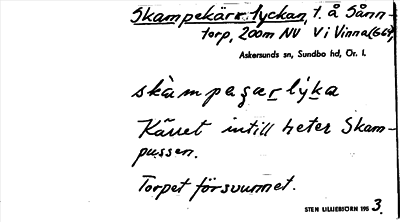 Skampekärr:lyckan, t. å Sånn-
torp, 200m NV V i Vinna(664)
Askersunds sn, Sundbo hd, Ör. l.
skàmpeʂar lýka
Kärret intill heter Skam-
pussen.
Torpet försvunnet.
STEN LILLIEBJÖRN 195 3.